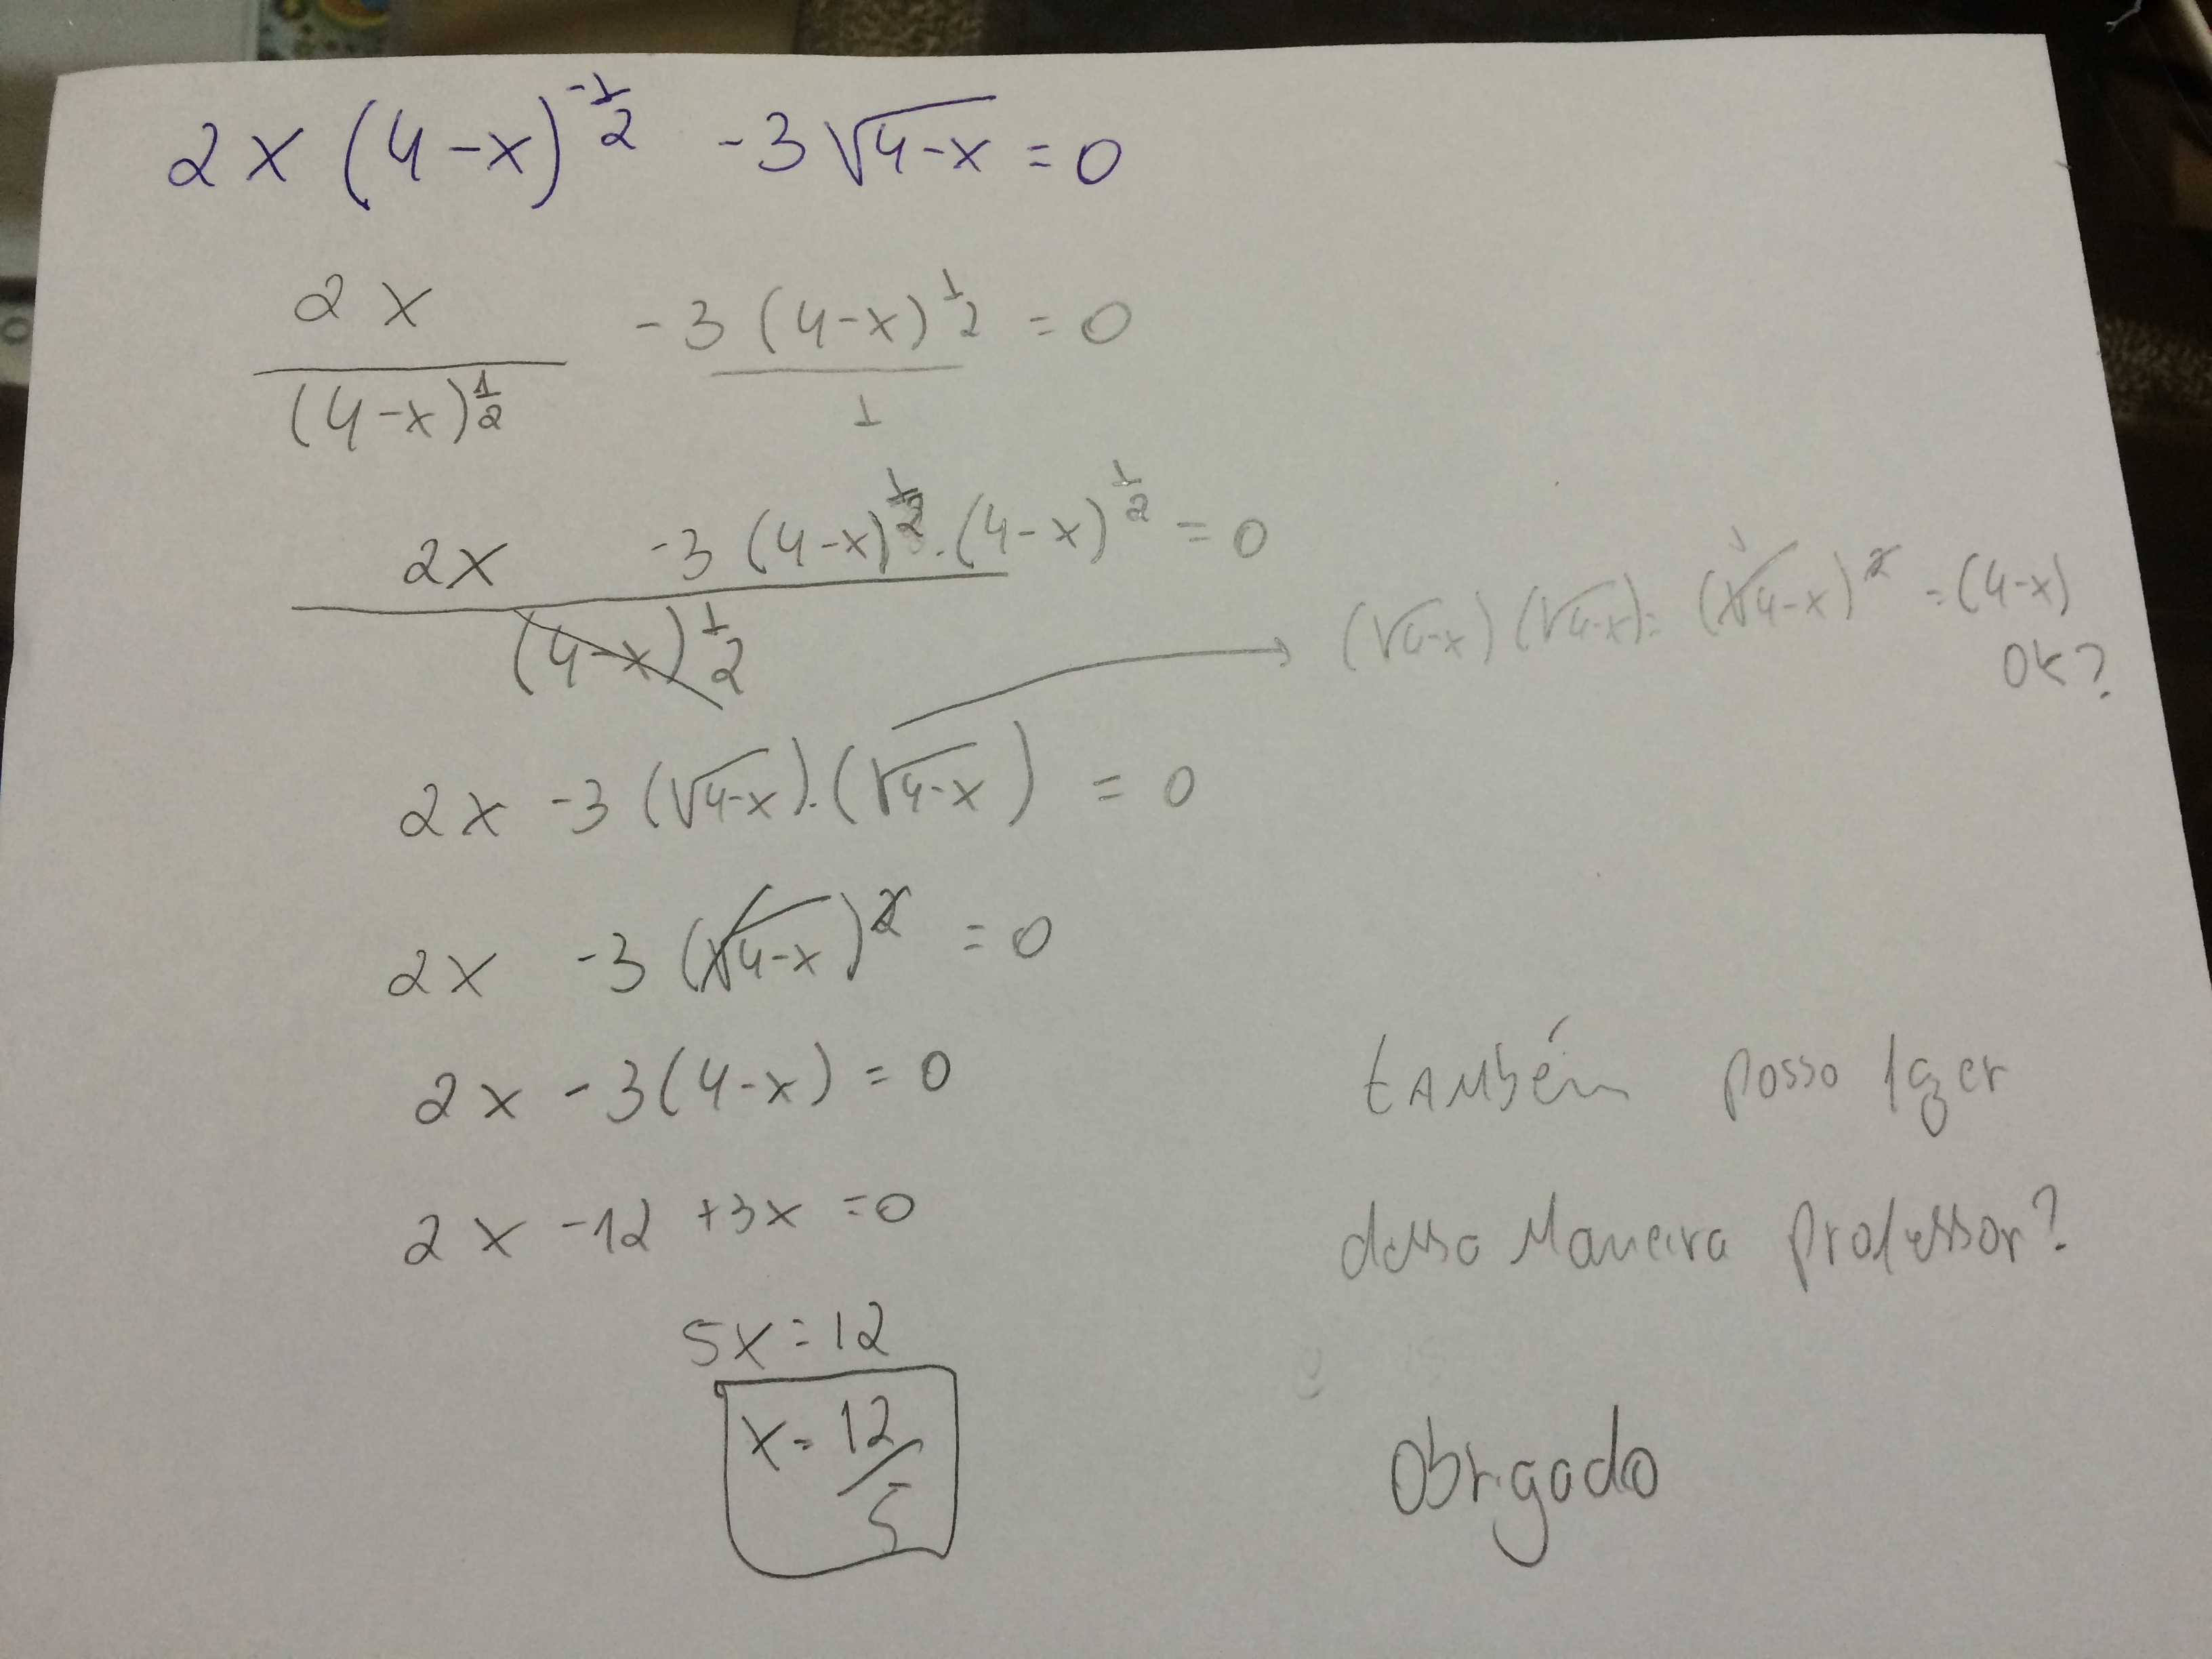 2x (4-x)^{-\frac{1}{2}} -3\sqrt{4-x} = 0
\frac{2x}{(4-x)^{\frac{1}{2}}} \frac{-3(4-x)^{\frac{1}{2}}}{1} = 0
\frac{2x -3(4-x)^{\frac{1}{2}}.(4-x)^{\frac{1}{2}}}{(4-x)^{\frac{1}{2}}} = 0
→ (\sqrt{4-x})(\sqrt{4-x}) = (\sqrt{4-x})^2 = (4-x)
OK?
2x -3(\sqrt{4-x}).(\sqrt{4-x}) = 0
2x -3(\sqrt{4-x})^2 = 0
2x -3(4-x) = 0
2x -12 +3x = 0
5x = 12
x = 12/5
também posso fazer
dessa maneira professor?
Obrigado